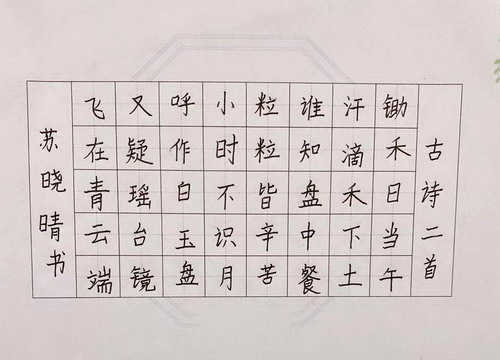 古诗二首
锄禾日当午
汗滴禾下土
谁知盘中餐
粒粒皆辛苦
小时不识月
呼作白玉盘
又疑瑶台镜
飞在青云端
苏晓晴书